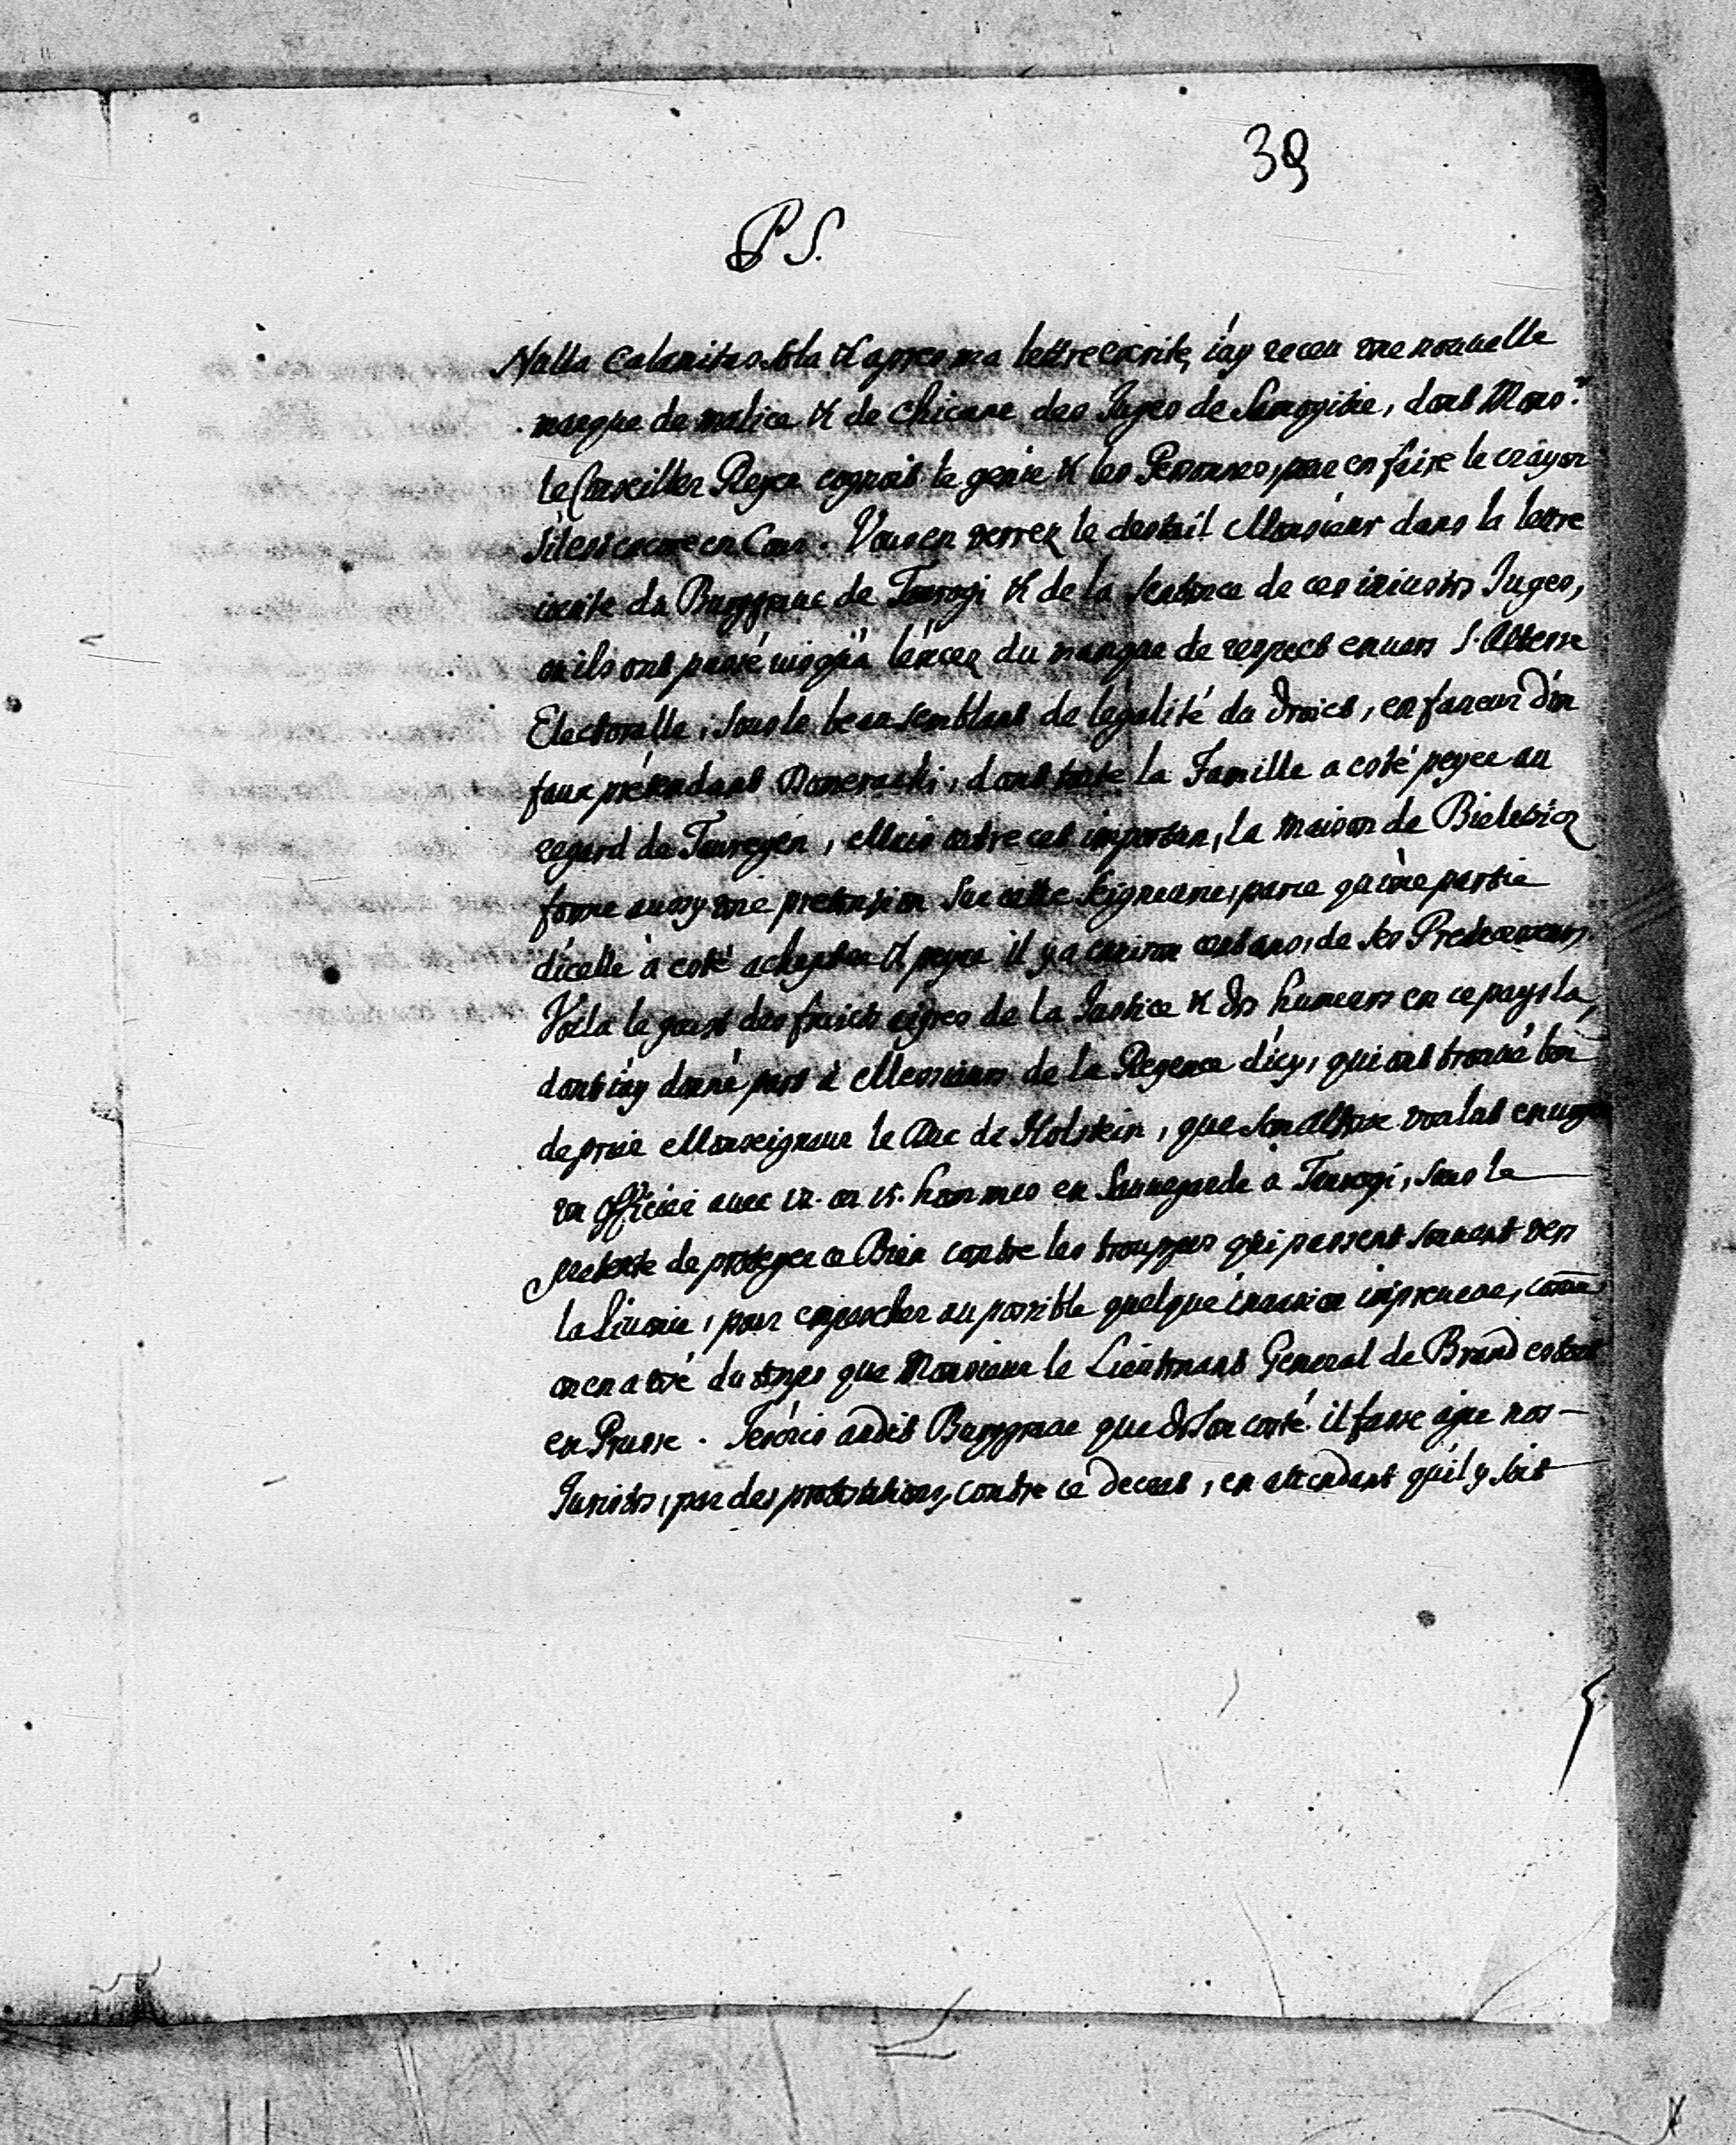 39
P S.
Nulla Calamitas sola & apres ma lettre escrite, i'ay receu une nouuelle
marque de malice & de chicane des Juges de Samogitie, dont Mons.r
le Conseiller Reyer cognoit le genie & les Personnes, pour en faire le crayon
s'il est encore en Cour. Vous en verrez le destail Monsieur dans la lettre
iointe du Burggraue de Taurogi & de la sentence de ces iniustes Juges,
ou ils ont passé iusqu'à l'excez du manque de respect enuers S. Altesse
Electoralle, sous le beau semblant de l'egalité du droict, en faueur d'un
faux prétendant, dont toute la Famille a esté payée au
regard de Taurogen, Mais outre cet imposteur, la maison de Bielewicz
forme aussy une pretension sur cette seigneurie, parce qu'une partie
d'icelle à esté acheptée & payée il y a enuiron cent ans, de ses Predecesseurs.
Voila le goust des fruicts aigres de la Justice & des humeurs en ce pays la,
dont i'ay donné part à Messieurs de la Regence d'icy, qui ont trouué bon
de prier Monseigneur le Duc de Holstein, que Son Altesse voulut enuoyer
un Officier auec 12. ou 15. hommes en Sauuegarde à Taurogi, sous le
pretexte de proteger ce Bien contre les trouppes qui passent souuent vers
la Liuonie, pour empescher au possible quelque inuasion impreueue, comme
on en a usé du temps que Monsieur le Lieutenant General de Brand estoit
en Prusse. J'escris audit Burggraue que de son costé il fasse agir nos
Juristes, par des protestations, contre ce decret, en attendant qu'il y soit